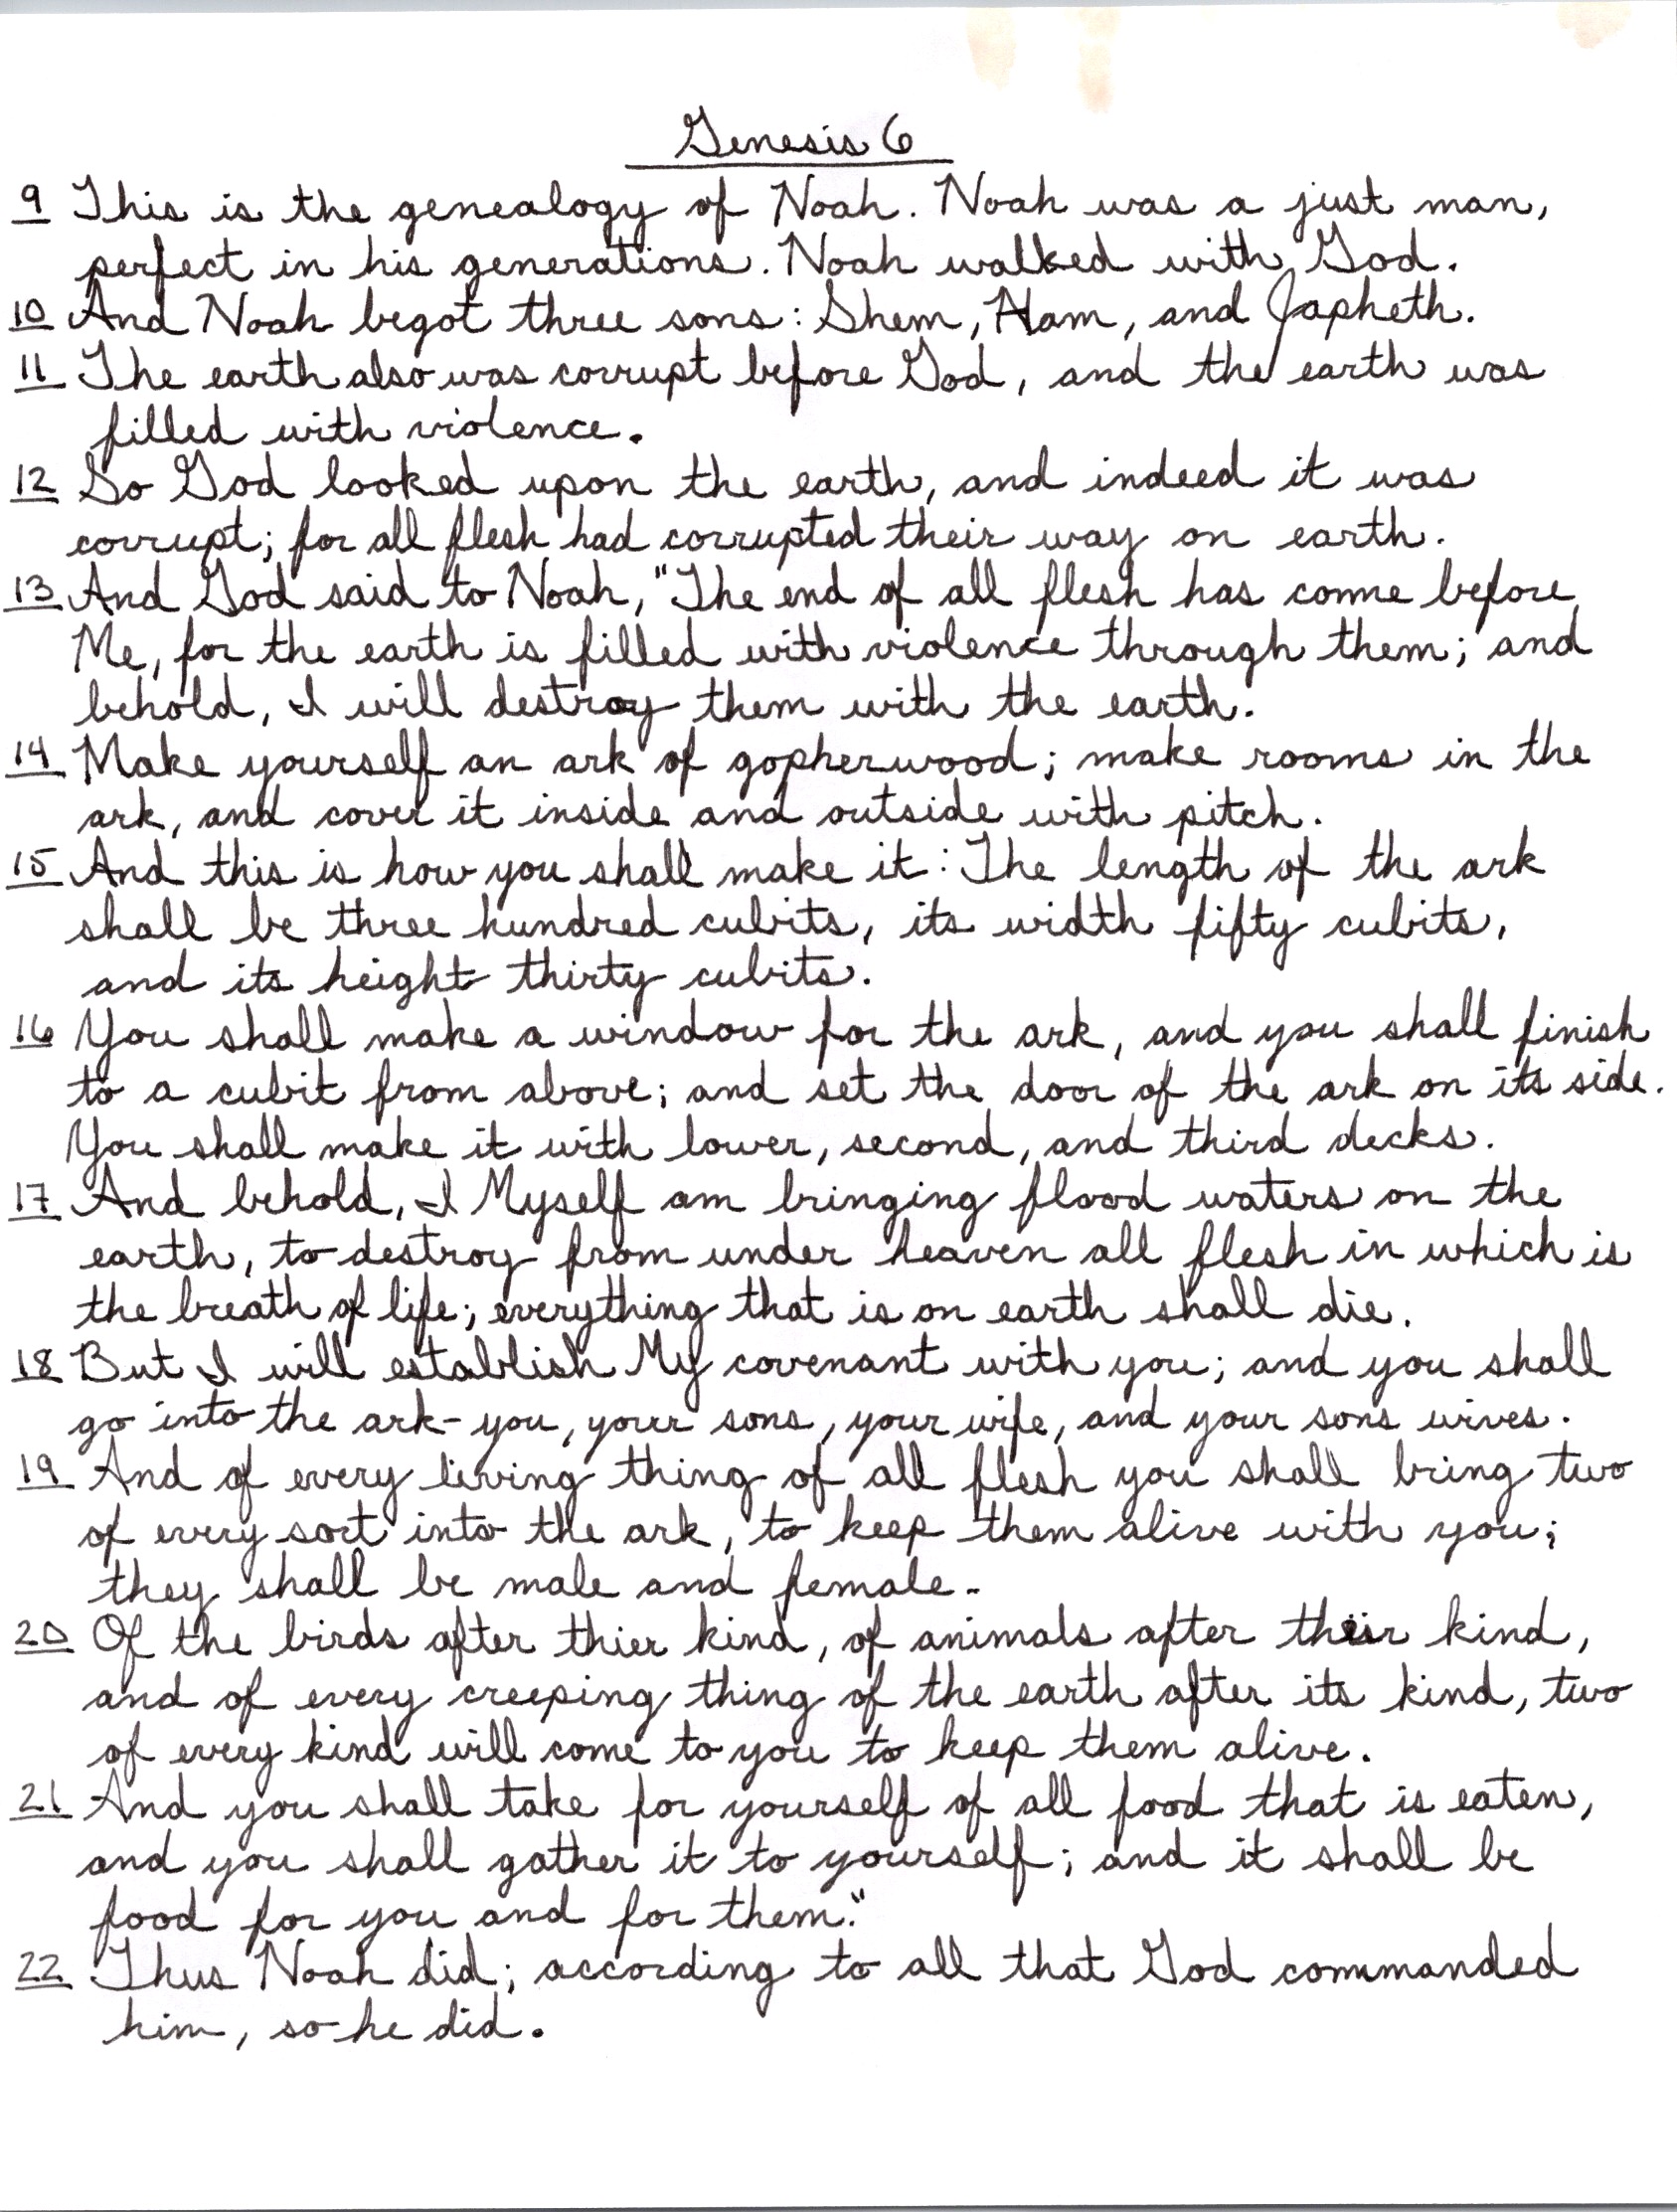 Genesis 6
9 This is the genealogy of Noah. Noah was a just man,
perfect in his generations. Noah walked with God.
10 And Noah begot three sons: Shem, Ham, and Japheth.
11 The earth also was corrupt before God, and the earth was
filled with violence.
12 So God looked upon the earth, and indeed it was
corrupt; for all flesh had corrupted their way on earth.
13 And God said to Noah, "The end of all flesh has come before
Me, for the earth is filled with violence through them; and
behold, I will destroy them with the earth.
14 Make yourself an ark of gopherwood; make rooms in the
ark, and cover it inside and outside with pitch.
15 And this is how you shall make it: The length of the ark
shall be three hundred cubits, its width fifty cubits,
and its height thirty cubits.
16 You shall make a window for the ark, and you shall finish
to a cubit from above; and set the door of the ark on its side.
You shall make it with lower, second, and third decks.
17 And behold, I Myself am bringing flood waters on the
earth, to destroy from under heaven all flesh in which is
the breath of life; everything that is on earth shall die.
18 But I will establish My covenant with you; and you shall
go into the ark-you, your sons, your wife, and your sons wives.
19 And of every living thing of all flesh you shall bring two
of every sort into the ark, to keep them alive with you;
they shall be male and female.
20 Of the birds after thier kind, of animals after their kind,
and of every creeping thing of the earth after its kind, two
of every kind will come to you to keep them alive.
21 And you shall take for yourself of all food that is eaten,
and you shall gather it to yourself; and it shall be
food for you and for them."
22 Thus Noah did; according to all that God commanded
him, so he did.